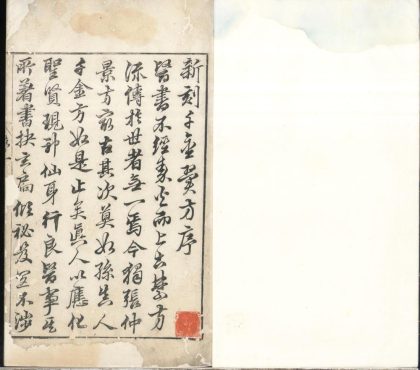 新刻千金翼方序
醫書不經秦火而上古禁方
流傳於世者無一焉今獨張仲
景方最古其次莫如孫真人
千金方如是止矣真人以應化
聖賢現神仙身行良醫事其
所著書抉玄高秘發並不涉